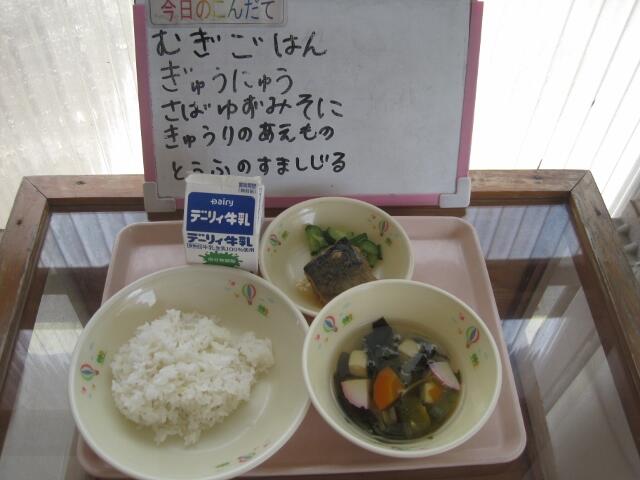 今日のこんだて
むぎごはん
ぎゅうにゅう
さばゆずみそに
きゅうりのあえもの
とうふのすましじる
Dairy
デーリィ牛乳
デーリィ牛乳